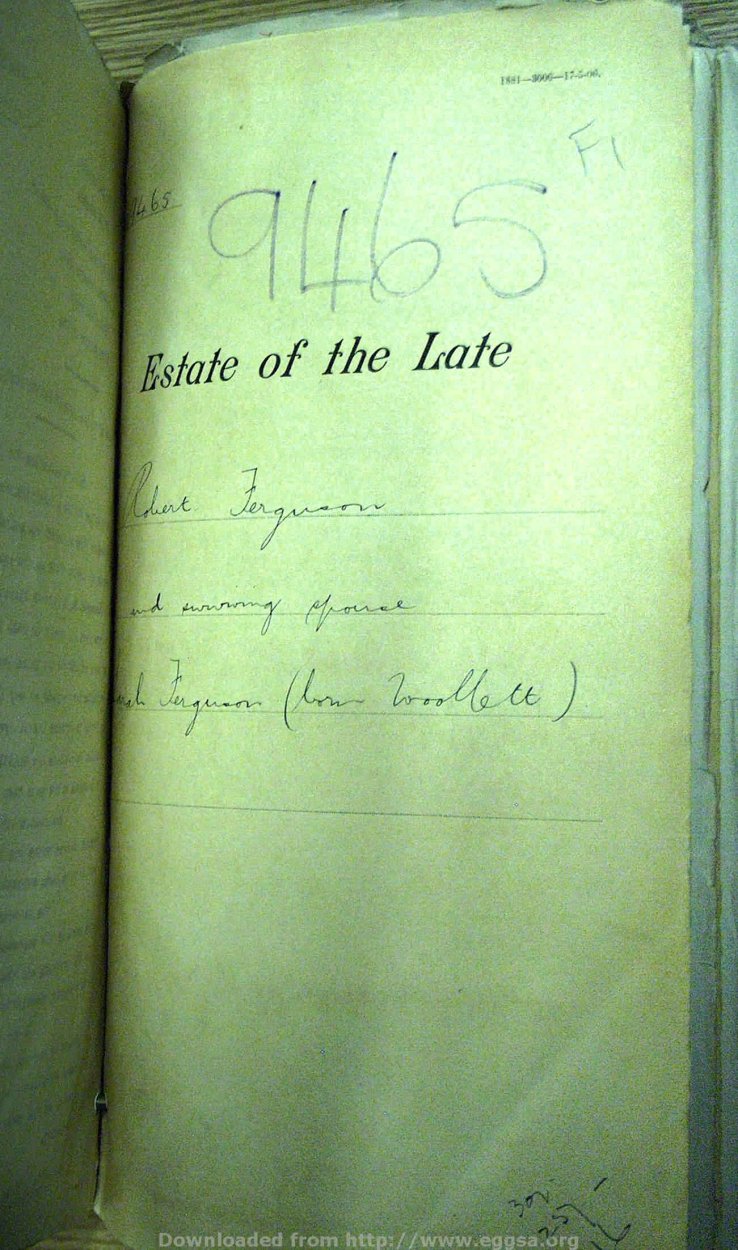 1881—3000—17-5-06.
F1
9465
Estate of the Late
Robert Ferguson
and surviving spouse
Ferguson (born Woollett)
Downloaded from http://www.eggsa.org